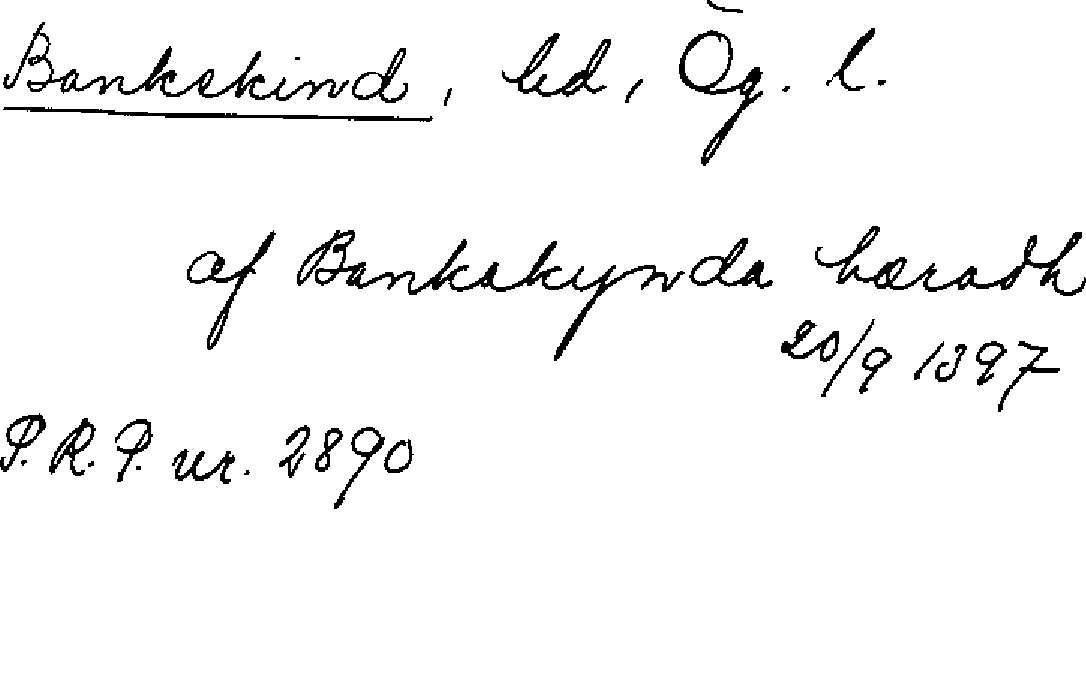 Bankskind, hd, Ög. l.
af Bankakynda hæradh
20/9 1397
P.R.P. nr. 2890